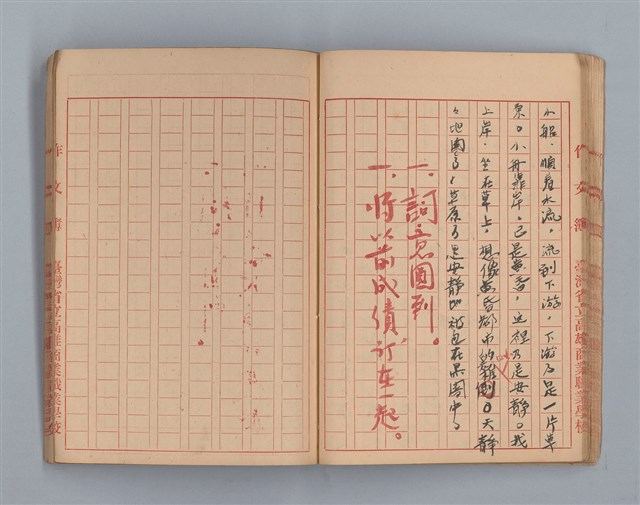 小船，順着水流，流到下游，下游乃是一片草
原。小舟靠岸，已是黃昏，這裡乃是安靜。我
上岸，坐在草上，想像黃昏都市的雜。天靜
地圓了，草原乃是安靜的被包在果園中。
一、詞意圓到。
一、將以前成績訂在一起。
作文簿 臺灣省立高雄商業職業學校
作文簿 臺灣省立高雄商業職業學校